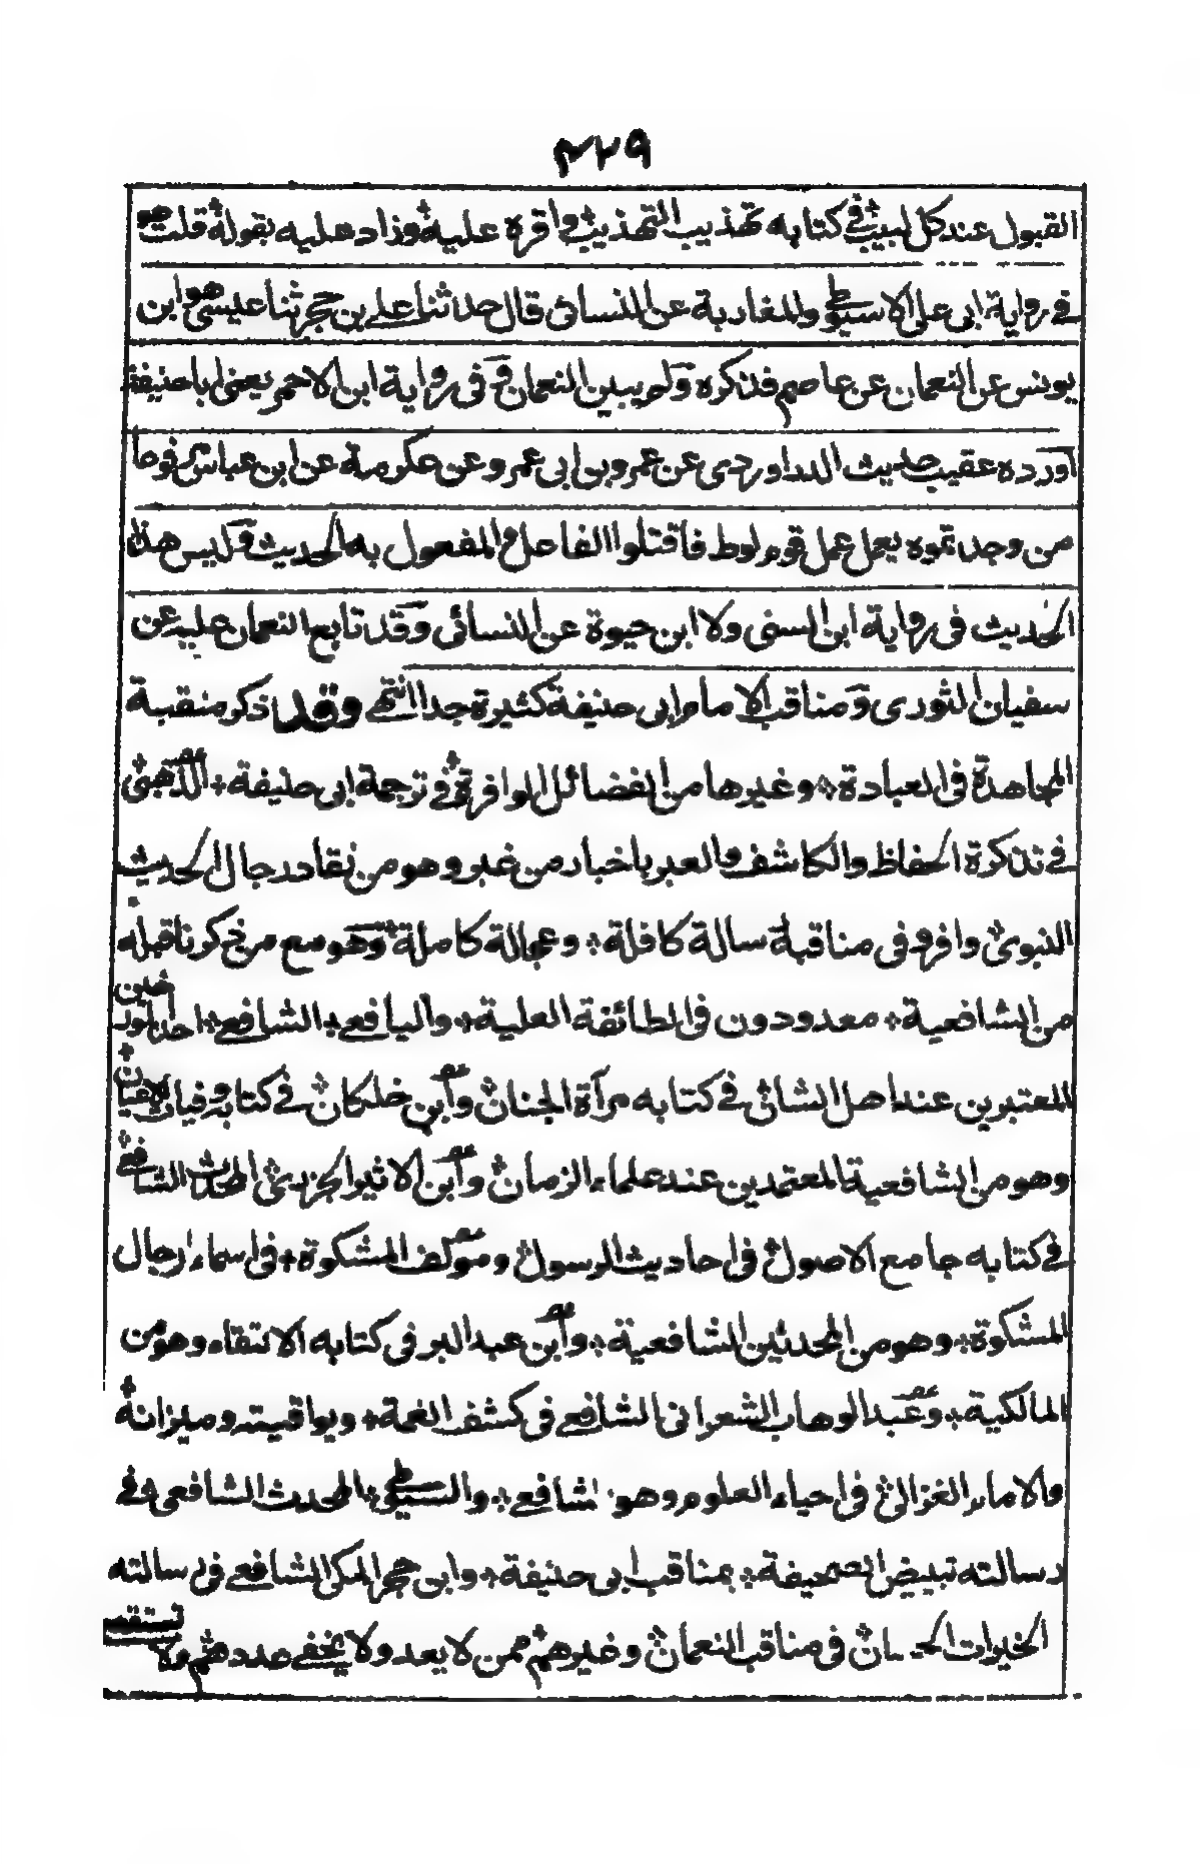 ٤٢٩
القبول عند كل لبيب في كتابه تهذيب التهذيب واقره عليه وزاد عليه بقوله قلت هو
في رواية ابى على الاسيوطي والمغاربة عن النسائى قال حدثنا على بن حجر ثنا عيسى هو ابن
يونس عن النعمان عن عاصم فذكره ولم ينسب النعمان وفى رواية ابن الاحمر يعنى ابا حنيفة
اورده عقيب حديث الدراوردى عن عمرو بن ابى عمرو عن عكرمة عن ابن عباس مرفوعا
من وجدتموه يعمل عمل قوم لوط فاقتلوا الفاعل والمفعول به الحديث وليس هذا
الحديث فى رواية ابن السنى ولا ابن حيوة عن النسائى وقد تابع النعمان عليه عن
سفيان الثورى ومناقب الامام ابى حنيفة كثيرة جدا انتهى وقد ذكر منقبة
المجاهدة فى العبادة وغيرها من الفضائل الوافرة في ترجمة ابى حنيفة الذهبى
في تذكرة الحفاظ والكاشف والعبر باخبار من غبر وهو من نقاد رجال الحديث
النبوى وافرد فى مناقبه رسالة كافلة وعجالة كاملة وهو مع من ذكرنا قبله
من الشافعية معدودون فى الطائفة العلية واليافعي الشافعي احد المورخين
المعتبرين عند اهل الشان في كتابه مرآة الجنان وابن خلكان في كتابه وفيات الاعيان
وهو من الشافعية المعتمدين عند علماء الزمان وابن الاثير الجزرى المحدث الشافعي
في كتابه جامع الاصول فى احاديث الرسول ومؤلف المشكوة فى اسماء رجال
المشكوة وهو من المحدثين الشافعية وابن عبد البر فى كتابه الانتقاء وهو من
المالكية وعبد الوهاب الشعرانى الشافعي فى كشف الغمة ويواقيته وميزانه
والامام الغزالى فى احياء العلوم وهو شافعي والسيوطي المحدث الشافعى في
رسالته تبييض الصحيفة بمناقب ابى حنيفة وابن حجر المكى الشافعي فى رسالته
الخيرات الحسان فى مناقب النعمان وغيرهم ممن لا يعد ولا يخفى عددهم ولا تستقصى